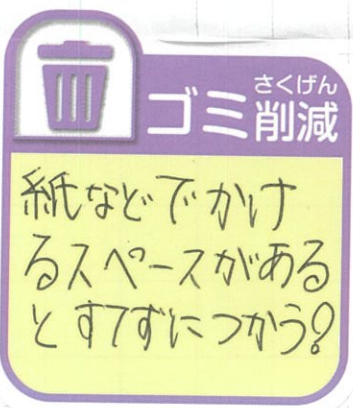 さくげん
ゴミ削減
紙などでかけ
るスペースがある
とすてずにつかう?